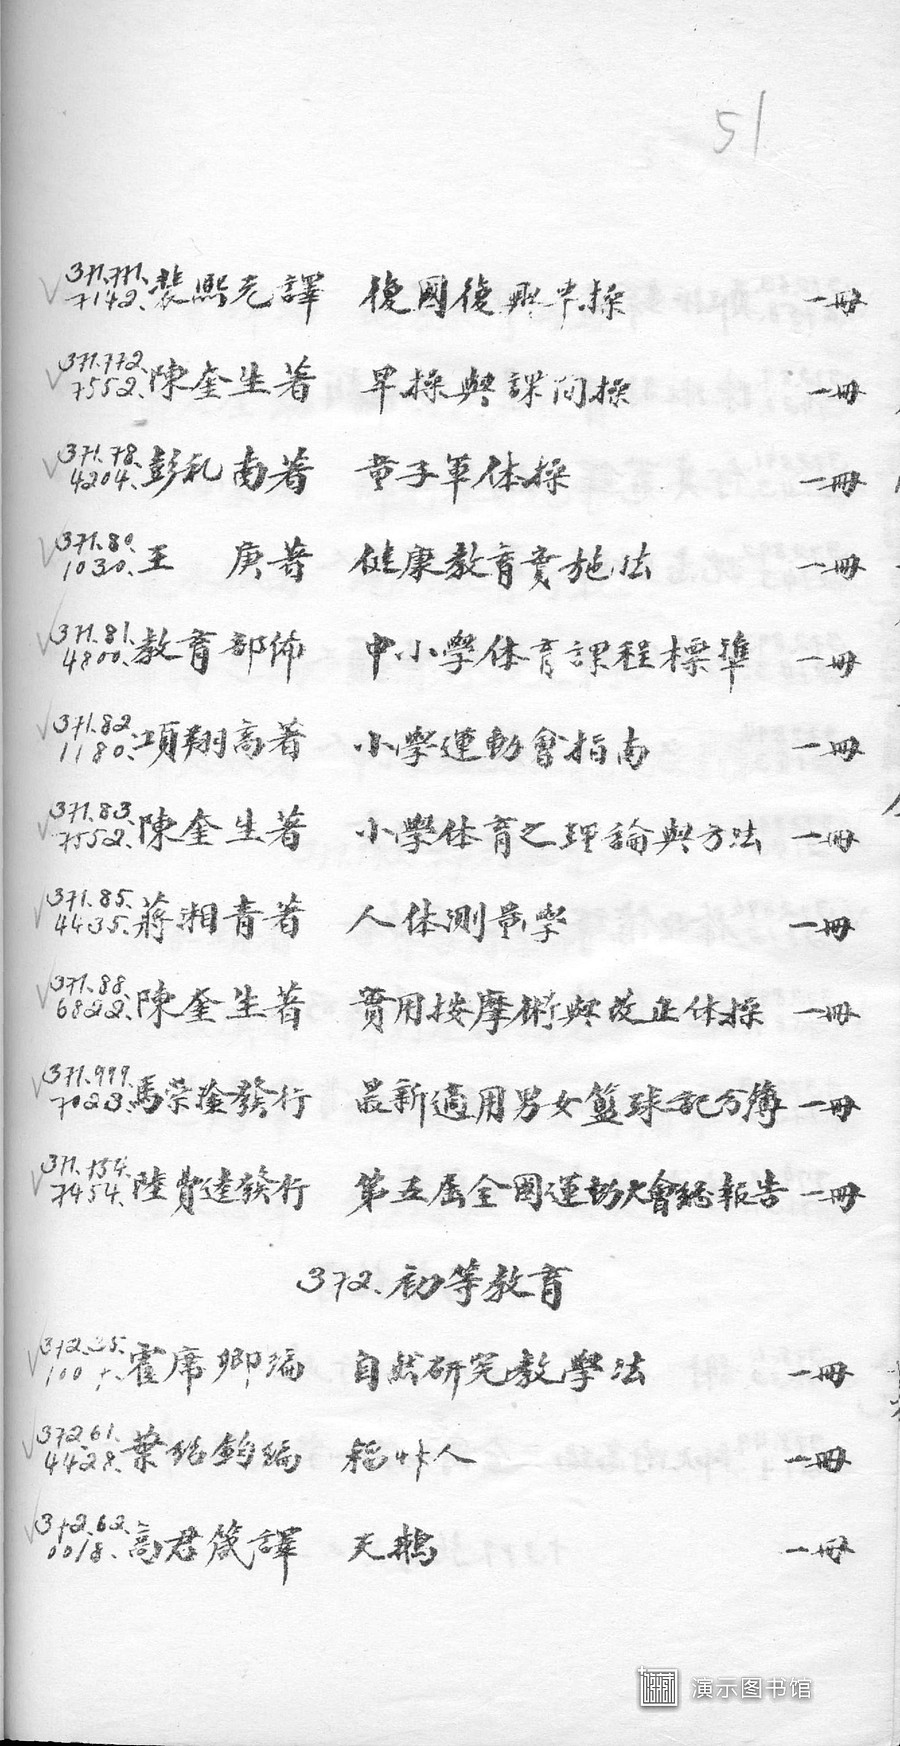 51
371.771.
7142. 裴熙元譯 復國復興早操 一冊
371.772.
7552. 陳奎生著 早操與課间操 一冊
371.78.
4204. 彭礼南著 童子軍体操 一冊
371.80.
1030. 王 庚著 健康教育實施法 一冊
371.81.
4800. 教育部佈 中小學体育課程標準 一冊
371.82.
1180. 項翔高著 小學運動會指南 一冊
371.83.
7552. 陳奎生著 小學体育之理論與方法 一冊
371.85.
4435. 蔣湘青著 人体測量學 一冊
371.88.
6822. 陳奎生著 實用按摩術與改正体操 一冊
371.999.
7023. 馬荣 發行 最新適用男女籃球記分簿 一冊
7454. 陸費逵發行 第五屆全國運動大會總報告 一冊
372. 初等教育
霍席卿編 自然研究教學法 一冊
372.61.
4428. 葉紹鈞編 稻草人 一冊
372.62.
0018. 高君箴譯 天鵝 一冊
演示图书馆